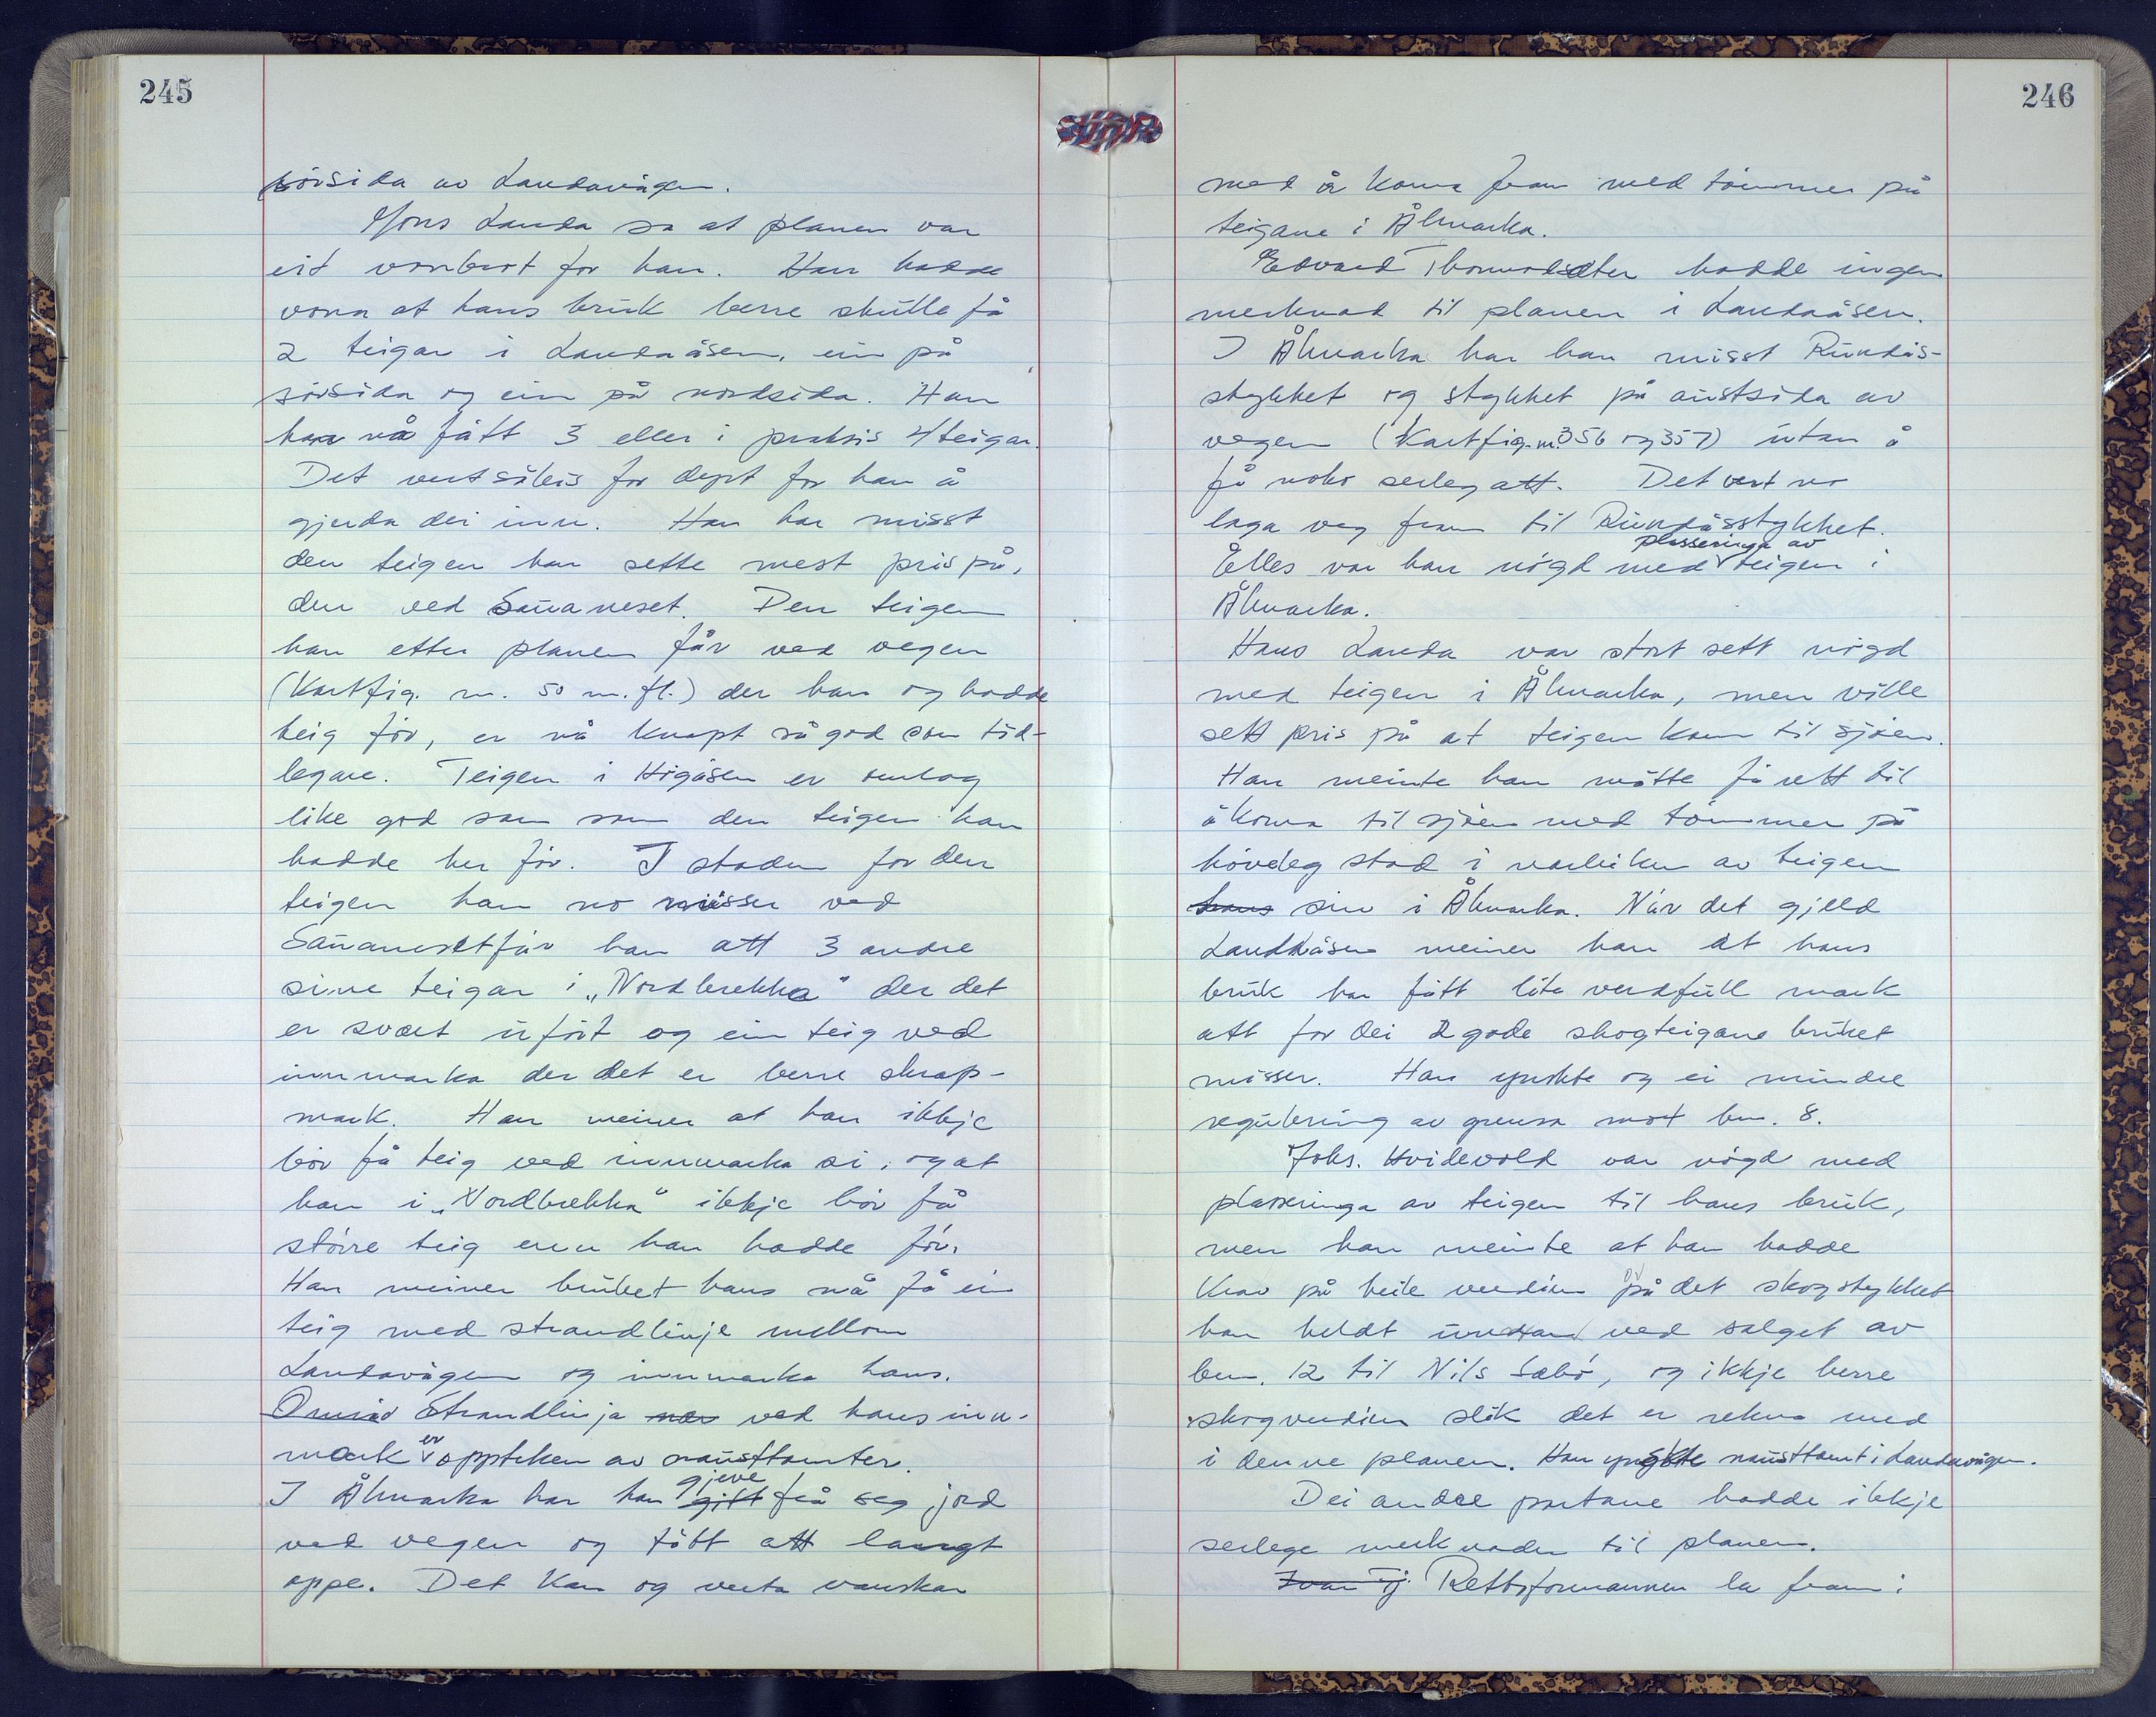 245
sørsida av Landavågen.
Mons Landa sa at planen var
eit vonbrot for han. Han hadde
vona at hans bruk berre skulle få
2 teigar i Landaåsen, ein på
sørsida og ein på nordsida. Han
har nå fått 3 eller i praksis 4 teigar.
Det vert såleis for dyrt for han å
gjerda dei inn. Han har misst
den teigen han sette mest pris på,
den ved Sauaneset. Den teigen
han etter planen får ved vegen
(Kartfig. nr. 50 m.fl.) der han og hadde
teig før, er nå knapt så god som tid-
legare. Teigen i Høgåsen er omlag
like god som som den teigen han
hadde her før. I staden for den
teigen han no misser ved
Sauaneset får han att 3 andre
sine teigar i "Nordbrekka" der det
er svært uført og ein teig ved
innmarka der det er berre skrap-
mark. Han meiner at han ikkje
bør få teig ved innmarka si, og at
han i "Nordbrekka" ikkje bør få
større teig enn han hadde før.
Han meiner bruket hans må få ein
teig med strandlinje mellom
Landavågen og innmarka hans.
Område Strandlinja ved hans inn-
mark er oppteken av nausttomter.
I Ålmarka har han gitt gjeve frå seg jord
ved vegen og fått att langt
oppe. Det kan og verta vanskar
246
med å koma fram med tømmer på
teigane i Ålmarka.
Edvard Thormodsæter hadde ingen
merknad til planen i Landaåsen.
I Ålmarka har han misst Rundås-
stykket og stykket på austsida av
vegen (Kartfig. nr. 356 og 357) utan å
få noko serleg att. Det vert no
laga veg fram til Rundåsstykket.
Elles var han nøgd med plasseringa av teigen i
Ålmarka.
Hans Landa var stort sett nøgd
med teigen i Ålmarka, men ville
sett pris på at teigen kom til sjøen.
Han meinte han måtte få rett til
å koma til sjøen med tømmer på
høveleg stad i nærleiken av teigen
hans sin i Ålmarka. Når det gjeld
Landaåsen meiner han at hans
bruk har fått lite verdfull mark
att for dei 2 gode skogteigane bruket
misser. Han ynskte og ei mindre
regulering av grensa mot bnr. 8.
Johs. Hvidevold var nøgd med
plasseringa av teigen til hans bruk,
men han meinte at han hadde
krav på heile verdien på det skogstykket
han heldt undan ved salget av
bnr. 12 til Nils Sæbø, og ikkje berre
skogverdien slik det er rekna med
i denne planen. Han ynskte nausttomt i Landavågen.
Dei andre partane hadde ikkje
serlege merknader til planen.
Ivar Tj. Rettsformannen la fram: